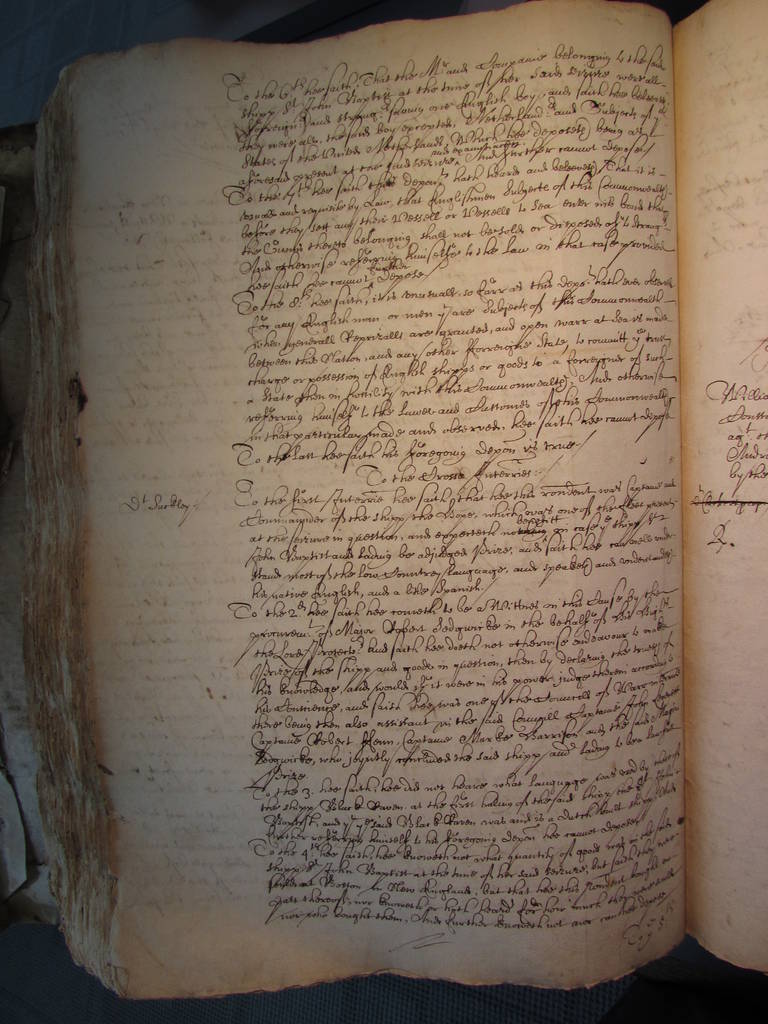 To the 6th hee saith, That the Mr and Companie belonging to the said
shipp St John Baptist at the time of her said seizure were all
fforreigners and strangers saving one English boy, and saith hee beleeveth
they were all, the said boy excepted, Netherlanders and Subjects of ye
States of the United Netherlands, Which hee deposeth being as
aforesaid present at the said seizure and examinations And further cannot depose
To the 7th hee saith this deponent hath heard and beleeveth That it is
usuall and requisite by Law, that Englishmen Subjects of this Commonwealth
before they sett any their Vessell or Vessells to Sea enter into bond that
the Gunns thereto belonging shall not be sold or disposed of to strangers
And otherwise referring himselfe to the Law in that case provided
hee saith hee cannot further depose
To the 8th hee saith, it is unusuall, so farr as this deponent hath ever observed
for any English man or men yt are Subjects of this Commonwealth
when generall Reprizalls are granted, and open warr at Sea is made
betweene this Nation, and any other fforreigne State, to committ ye true
charge or possession of English shipps or goods to a forreigner of such
a State then in hostility with this Commonwealth, And otherwise
referring himselfe to the Lawes and Customes of this Commonwealth
in that particular made and observed, hee saith hee cannot depose
To the last hee saith his foregoing deposition is true./
To the Crosse Interries:-
Dt Suckley./
To the first Interrie hee saith, that hee this rendent was Captaine and
Commander of the shipp the Hope, which was one of the fleet present
at the seizure in question, and expecteth no benefitt in case ye shipp St
John Baptist and lading be adjudged Prize, and saith hee can well under
stand most of the low Countrey language, and speaketh and understandeth
his native English, and a little Spanish./
To the 2d hee saith hee cometh to be a Wittnes in this Cause by the
procurement of Major Robert Sedgwicke in the behalfe of his Highnes
the Lord Protector, And saith hee doeth not otherwise endeavour to make
Prize of the shipp and goods in question, then by declaring the truth of
his knowledge, and would if it were in his power judge therein according to
his Conscience, and saith hee was one of the Councell of Warr
there being then also assistant in the said Councill Captaine John
Captaine Robert ffenn, Captaine Marke Harrison and the said Major
Sedgwicke, who joyntly concluded the said shipp and lading to be lawfull
Prize
To the 3. hee saith, hee did not heare what language was used by those of
the shipp Black Raven at the first haling of the said shipp the St John
Baptist, and yt the said Black Raven was and is a Dutch built shipp And
further referring himselfe to his foregoing deposition hee cannot depose./
To the 4th hee saith, hee knoweth not what quantity of goods was in the said
shipp St John Baptist at the time of her said seizure, but saith they were
sold at Boston in New England, but that hee this rendent bought no
part thereof, nor knoweth or hath heard for how much they were sold
nor who bought them, And further knoweth not nor can hee depose
To ye 5
Willia
Const
agt
Andr
by the
2.